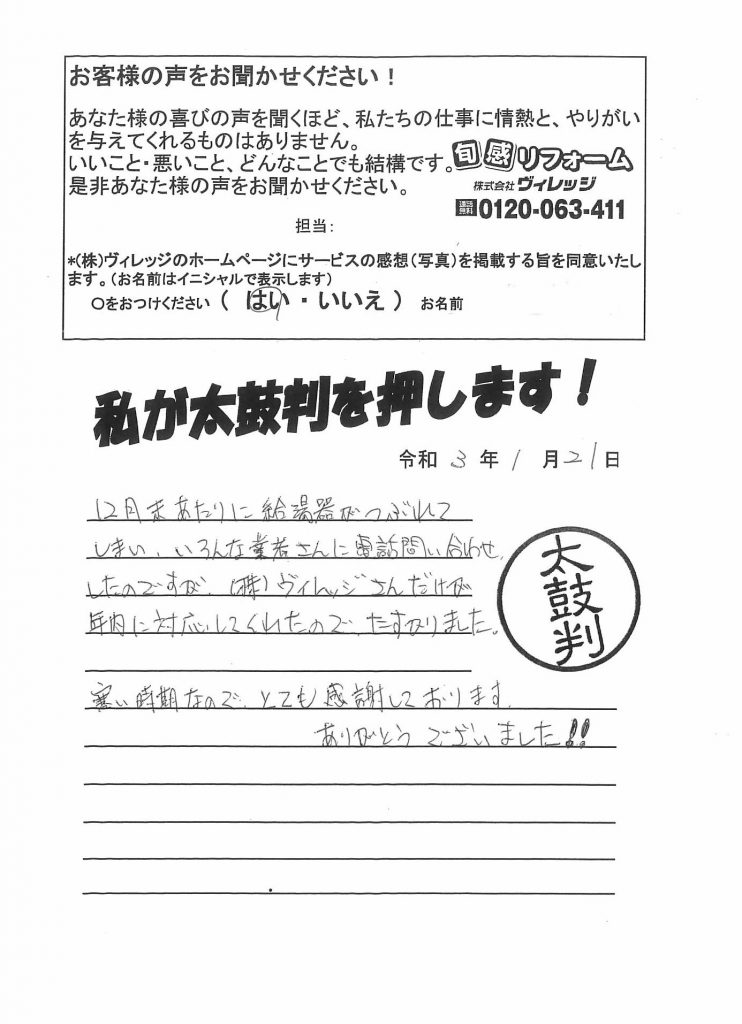 お客様の声をお聞かせください！
あなた様の喜びの声を聞くほど、私たちの仕事に情熱と、やりがい
を与えてくれるものはありません。
いいこと・悪いこと、どんなことでも結構です。
是非あなた様の声をお聞かせください。
旬感リフォーム
株式会社 ヴィレッジ
0120-063-411
担当：
*(株)ヴィレッジのホームページにサービスの感想（写真）を掲載する旨を同意いたし
ます。（お名前はイニシャルで表示します）
〇をおつけください （ はい ・ いいえ ） お名前
私が太鼓判を押します！
令和 3 年 1 月 21 日
12月末あたりに給湯器がつぶれて
しまい、いろんな業者さんに電話問い合わせ
したのですが、(株)ヴィレッジさんだけが
年内に対応してくれたので、たすかりました。
太鼓判
寒い時期なので、とても感謝しております。
ありがとうございました!!